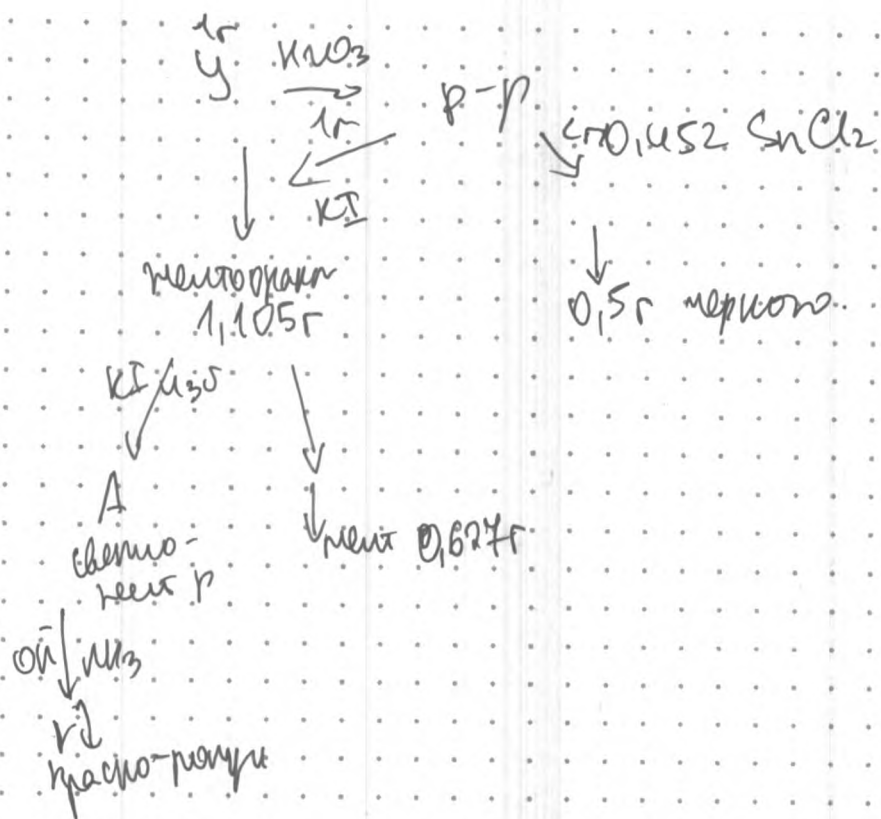 1г
У KNO3 р-р
1г
<m0,452 SnCl2
KI
желтооранж
1,105г
0,5г черного
KI изб
А
светло-
желт р
↓желт 0,627г
OH NH3
Г↓
красно-